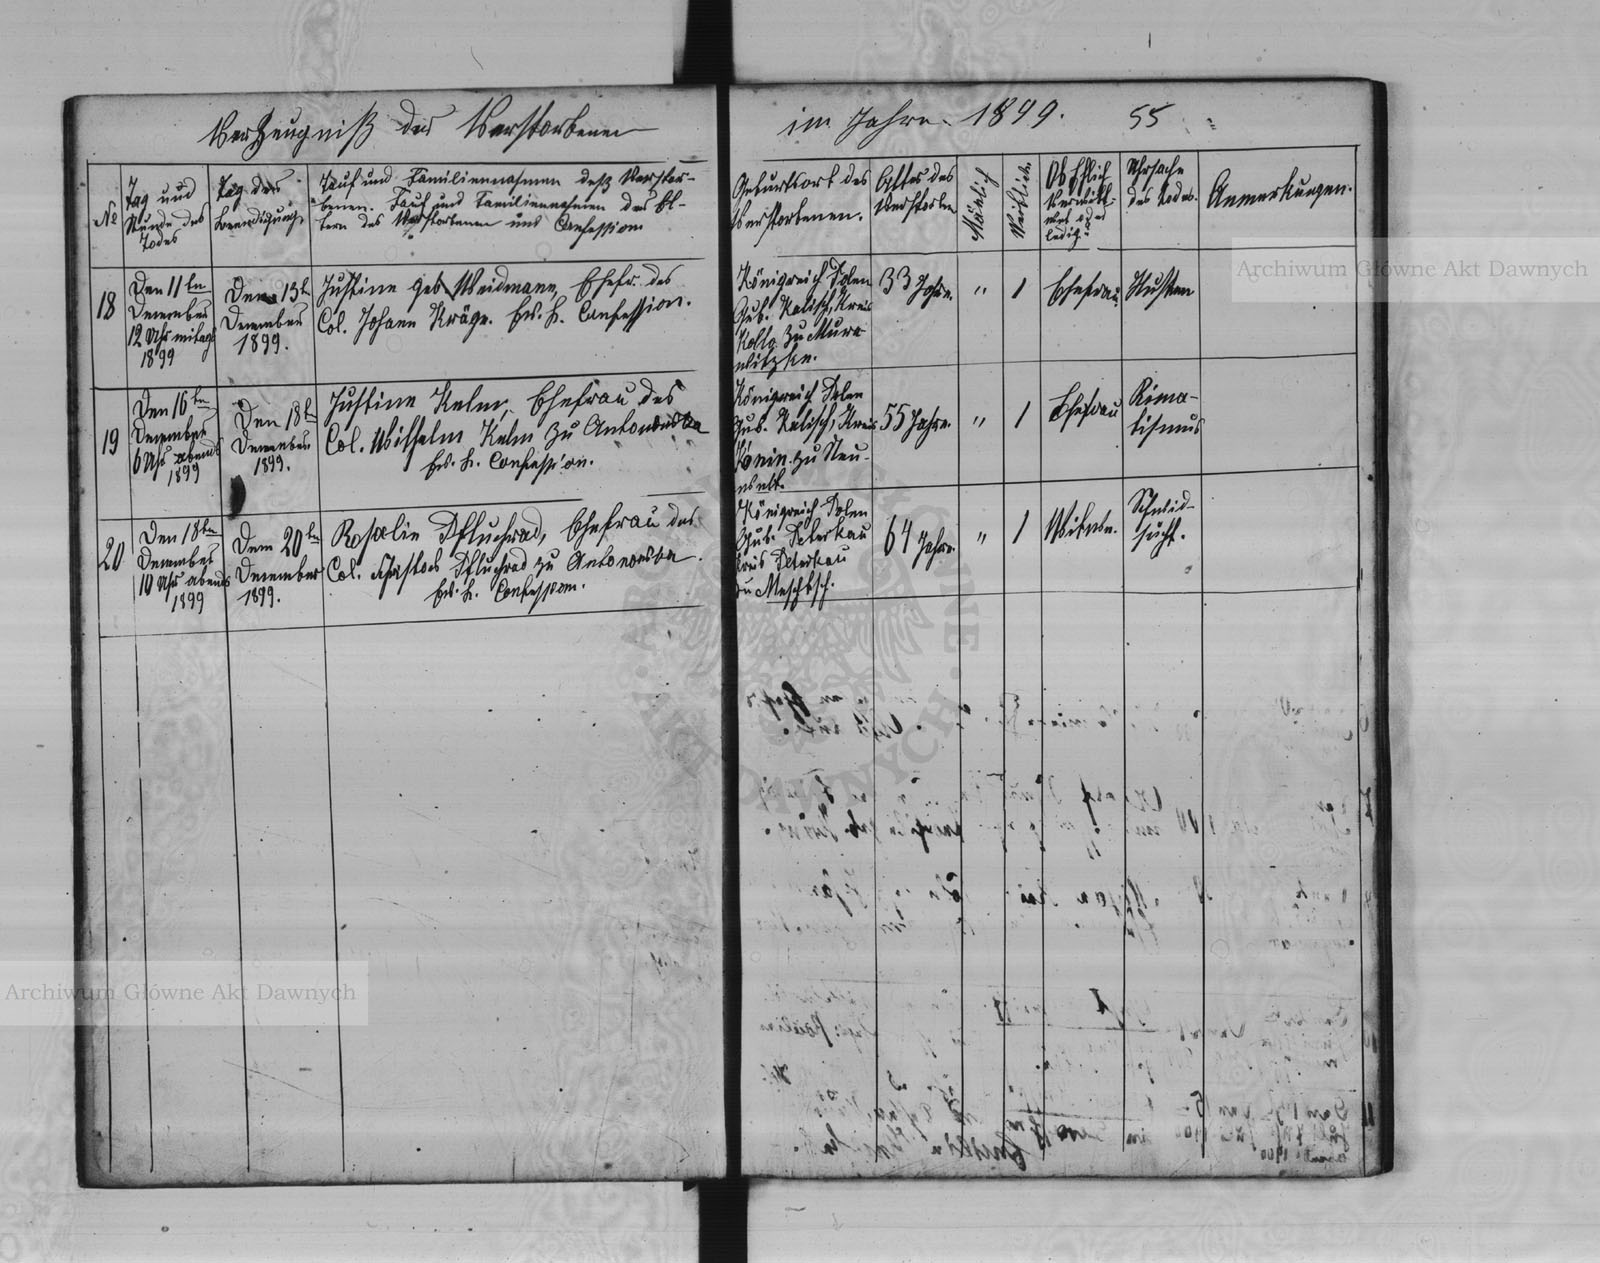 Verzeugniß der Verstorbenen
im Jahre 1899. 55
№
Tag und
Stunde des
Todes
Tag der
Beerdigung
Tauf und Familiennahmen deß Verstor-
benen. Tauf und Familiennahmen der El-
tern des Verstorbenen und Confession
Geburtsort des
Verstorbenen.
Alter des
Verstorben
Mänlich
Weiblich
Ob Ehlich
Verwittwet oder
ledig
Uhrsache
des Todes.
Anmerkungen.
18
Den 11ten
December
12 Uhr mitags
1899
Den 13t
December
1899.
Justine geb Weidmann, Ehefr. des
Col. Johann Kräge. Ev. L. Confession.
Königreich Polen
Gub. Kalisch, Kreis
Kollo zu
33 Jahre.
"
1
Ehefrau
Husten
19
Den 16ten
December
6 Uhr abends
1899
Den 18t
December
1899.
Justine Kelm, Ehefrau des
Col. Wilhelm Kelm zu Antonowka
Ev. L. Confession.
Königreich Polen
Gub. Kalisch, Kreis
Konin zu Neu-
welt.
55 Jahre.
"
1
Ehefrau
Rima-
tismus
20
Den 18ten
December
10 Uhr abends
1899
Dem 20ten
December
1899.
Rosalie Pfluchrad, Ehefrau des
Col. Pfluchrad zu Antonowka.
Ev. L. Confession.
Königreich Polen
Gub. Peterkau
Kreis Peterkau
zu
64 Jahre.
"
1
Witwe.
Schwid-
sucht.
Archiwum Główne Akt Dawnych
Archiwum Główne Akt Dawnych